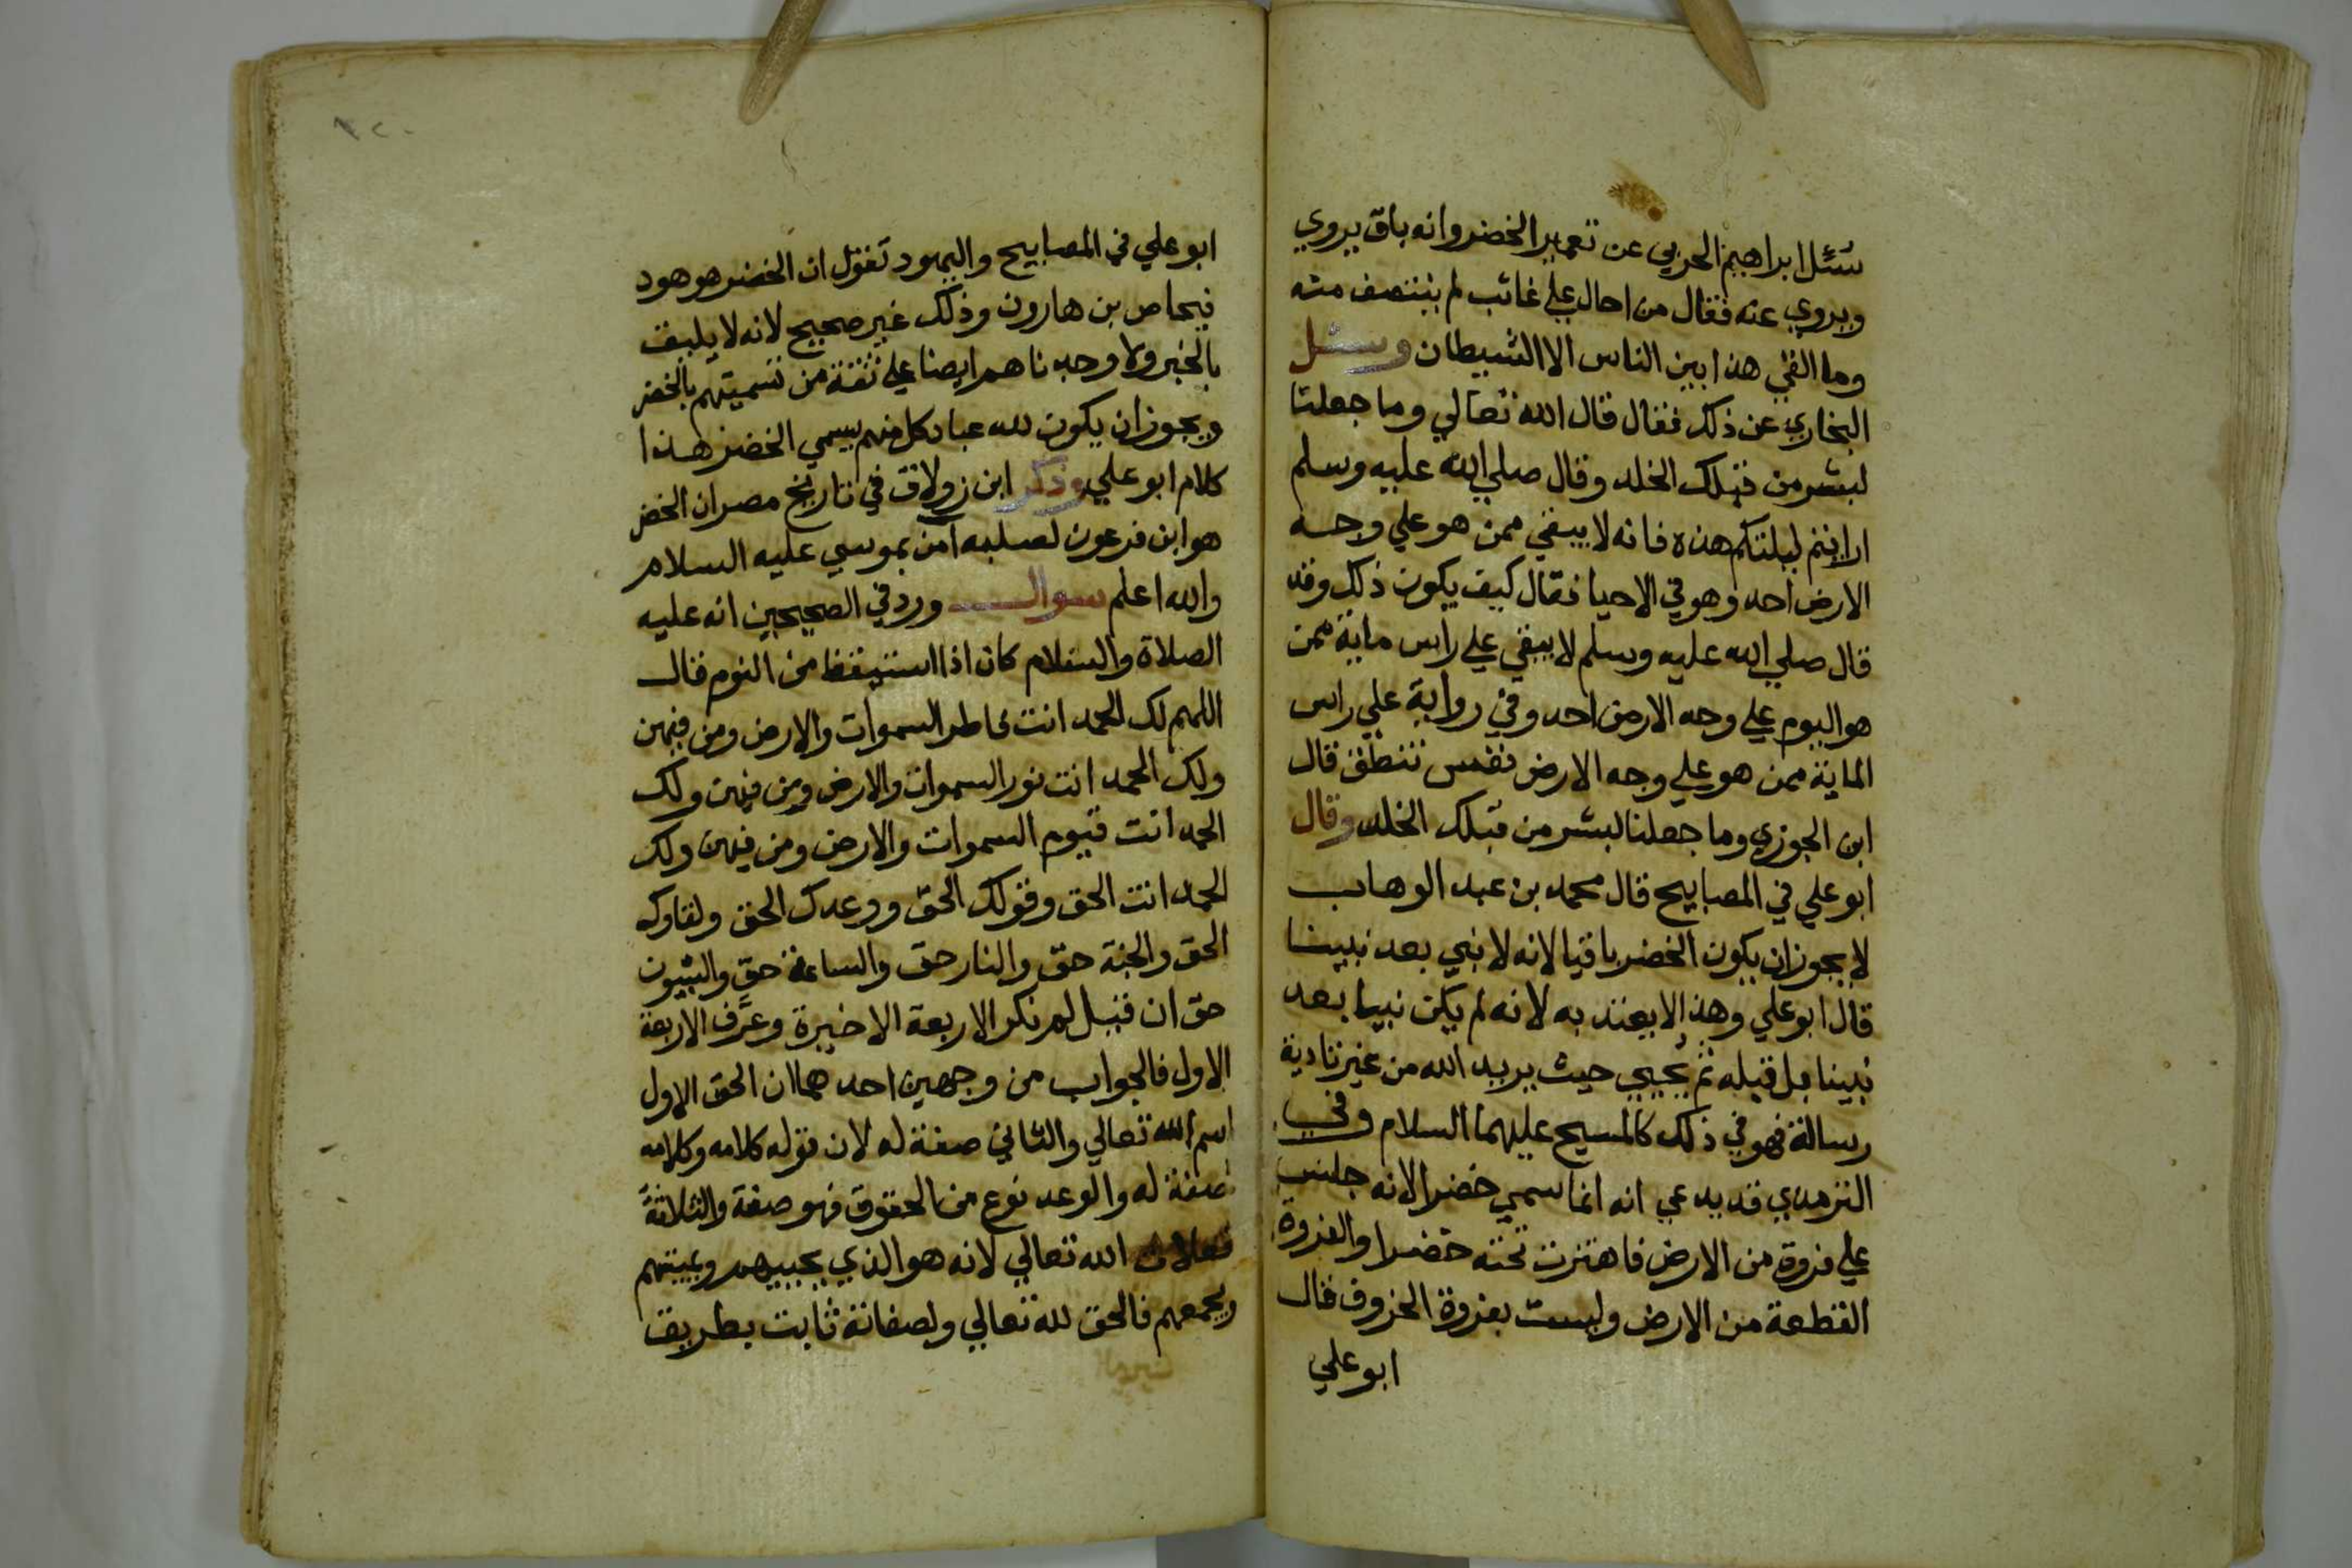 سئل ابراهيم الحربي عن تعمير الخضر وانه باق يروي
ويروي عنه فقال من احال علي غائب لم ينتصف منه
وما القي هذا بين الناس الا الشيطان وسئل
البخاري عن ذلك فقال قال الله تعالي وما جعلنا
لبشر من قبلك الخلد وقال صلي الله عليه وسلم
ارايتم ليلتكم هذه فانه لا يبقي ممن هو علي وجه
الارض احد وهو في الاحيا فقال كيف يكون ذلك وقد
قال صلي الله عليه وسلم لا يبقي علي راس ماية ممن
هو اليوم علي وجه الارض احد وفي رواية علي راس
الماية ممن هو علي وجه الارض نفس تنطق قال
ابن الجوزي وما جعلنا لبشر من قبلك الخلد وقال
ابو علي في المصابيح قال محمد بن عبد الوهاب
لا يجوز ان يكون الخضر باقيا لانه لا نبي بعد نبينا
قال ابو علي وهذا لا يعتد به لانه لم يكن نبيا بعد
نبينا بل قبله ثم يحيي حيث يريد الله من غير تادية
رسالة فهو في ذلك كالمسيح عليهما السلام وفي
الترمدي قد يدعي انه انما سمي خضرا لانه جلس
علي فروة من الارض فاهتزت تحته خضرا والفروة
القطعة من الارض وليست بفروة الخروف قال
ابو علي
ابو علي في المصابيح واليهود تقول ان الخضر هو هود
فيحاص بن هارون وذلك غير صحيح لانه لا يليق
بالخبر ولا وجدناهم ايضا علي ثقة من تسميتهم بالخضر
ويجوز ان يكون لله عباد كل منهم يسمي الخضر هذا
كلام ابو علي وذكر ابن زولاق في تاريخ مصر ان الخضر
هو ابن فرعون لصلبه آمن بموسي عليه السلام
والله اعلم سوال ورد في الصحيحين انه عليه
الصلاة والسلام كان اذا استيقظ من النوم قال
اللهم لك الحمد انت فاطر السموات والارض ومن فيهن
ولك الحمد انت نور السموات والارض ومن فيهن ولك
الحمد انت قيوم السموات والارض ومن فيهن ولك
الحمد انت الحق وقولك الحق ووعدك الحق ولقاوك
الحق والجنة حق والنار حق والساعة حق والنبيون
حق ان قيل لم نكر الاربعة الاخيرة وعرَّف الاربعة
الاول فالجواب من وجهين احدهما ان الحق الاول
اسم الله تعالي والثاني صفة له لان قوله كلامه وكلامه
صفة له والوعد نوع من الحقوق فهو صفة والثلاثة
الله تعالي لانه هو الذي يحييهم ويميتهم
ويجمعهم فالحق لله تعالي ولصفاته ثابت بطريق